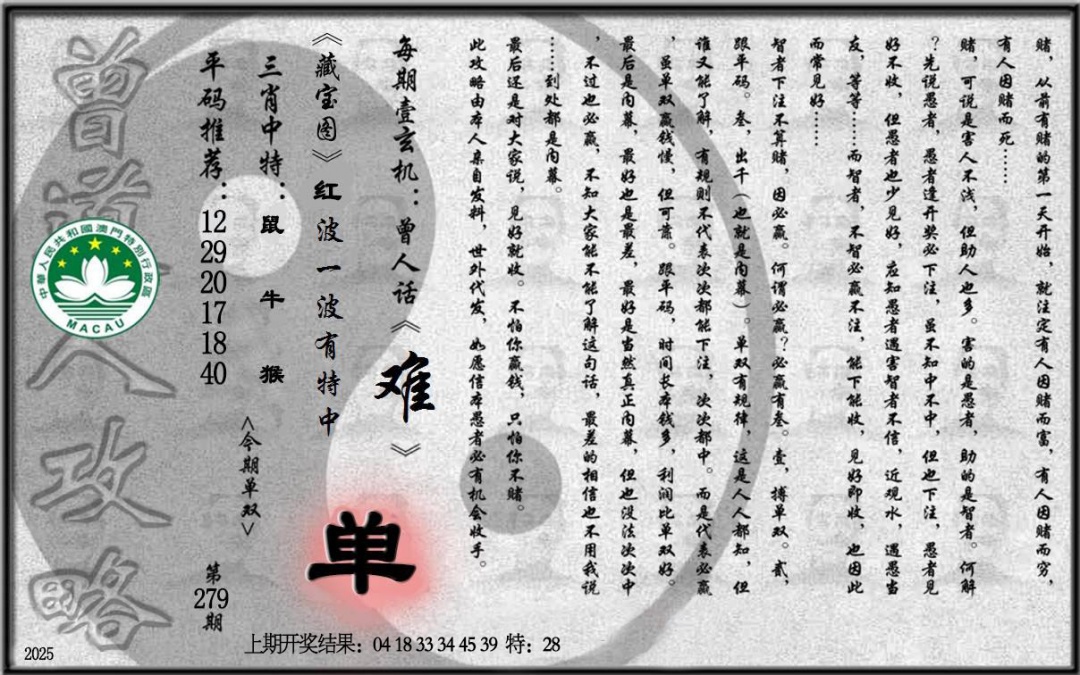 赌，从前有赌的第一天开始，就注定有人因赌而富，有人因赌而穷，
有人因赌而死……
赌，可说是害人不浅，但助人也多。害的是愚者，助的是智者。何解
？先说愚者，愚者逢开奖必下注，虽不知中不中，但也下注，愚者见
好不收，但愚者也少见好，应知愚者遇害智者不信，近观水，遇愚当
友，等等……而智者，不智必赢不注，能下能收，见好即收，也因此
而常见好……
智者下注不算赌，因必赢。何谓必赢？必赢有叁。壹，搏单双。贰，
跟单码。叁，出千（也就是内幕）。单双有规律，这是人人都知，但
谁又能了解，有规则不代表次次都能下注，次次都中。而是代表必赢
，虽单双赢钱慢，但可靠。跟单码，时间长本钱多，利润比单双好。
最后是内幕，最好也是最差，最好是当然真正内幕，但也没法次次中
，不过也必赢，不知大家能不能了解这句话，最差的相信也不用我说
……到处都是内幕。
最后还是对大家说，见好就收。不怕你赢钱，只怕你不赌。
此攻略由本人亲自发料，世外代发，如愿信本愚者必有机会收手。
每期壹玄机：曾人话《难》
《藏宝图》红波一波有特中
单
三肖中特：鼠 牛 猴
<今期单双>
平码推荐：12 29 20 17 18 40
第279期
曾道人攻略
中華人民共和國澳門特別行政區
MACAU
上期开奖结果：04 18 33 34 45 39 特：28
2025